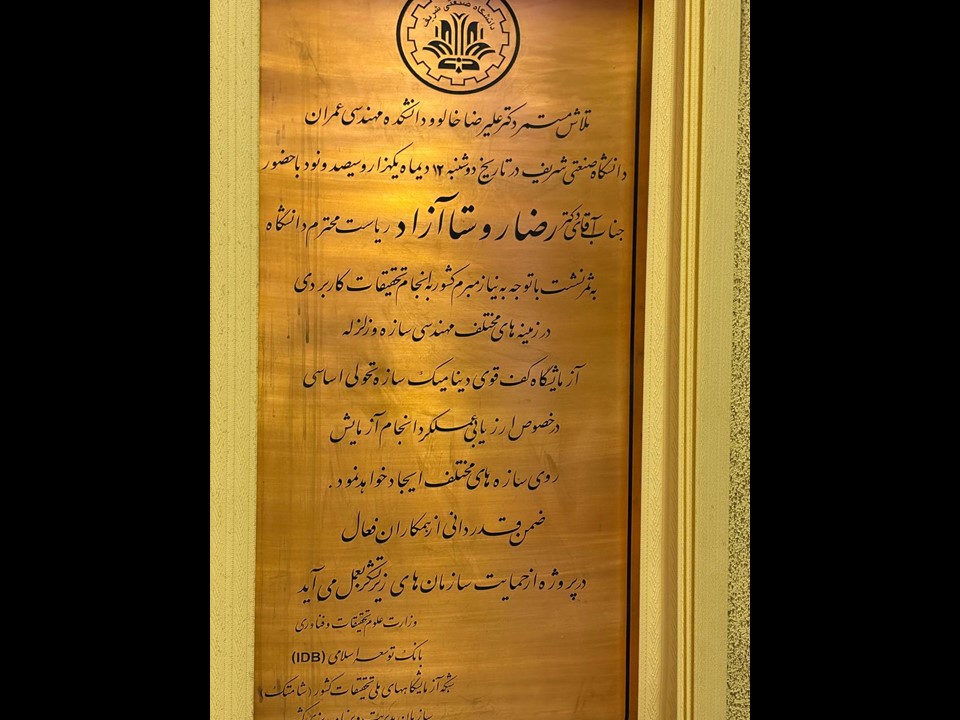 دانشگاه صنعتی شریف
تلاش مستمر دکتر علیرضا خالو و دانشکده مهندسی عمران
دانشگاه صنعتی شریف در تاریخ دوشنبه ۱۲ دیماه یکهزار و سیصد و نود با حضور
جناب آقای دکتر رضا روستا آزاد ریاست محترم دانشگاه
بثمر نشست با توجه به نیاز مبرم کشور به انجام تحقیقات کاربردی
در زمینه های مختلف مهندسی سازه و زلزله
آزمایشگاه کف قوی دینامیک سازه تحولی اساسی
درخصوص ارزیابی عملکرد انجام آزمایش
روی سازه های مختلف ایجاد خواهد نمود.
ضمن قدردانی از همکاران فعال
در پروژه از حمایت سازمان های زیر تشکر بعمل می آید
وزارت علوم تحقیقات و فناوری
بانک توسعه اسلامی (IDB)
شبکه آزمایشگاههای ملی تحقیقات کشور (شامتک)
سازمان مدیریت و برنامه ریزی کشور